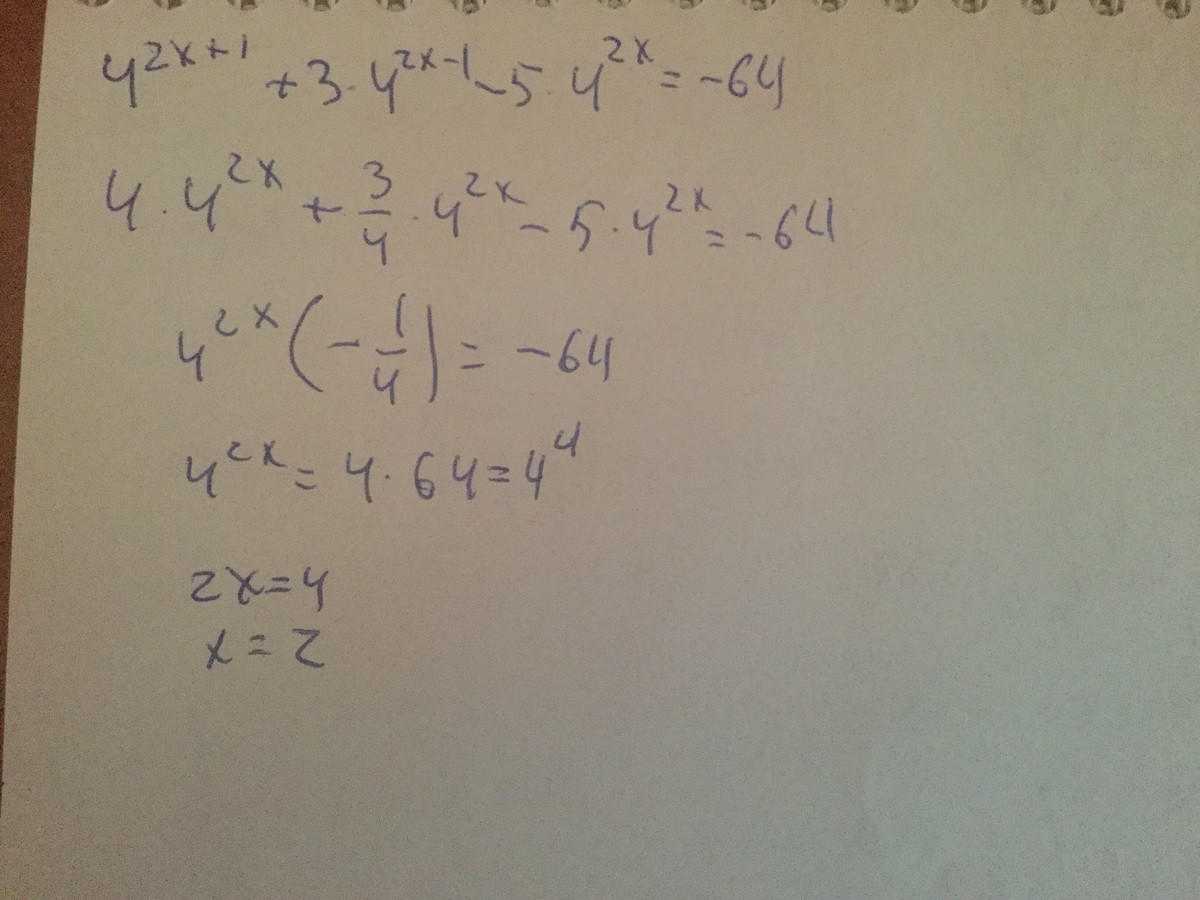 4^{2x+1} + 3·4^{2x-1} - 5·4^{2x} = -64
4·4^{2x} + \frac{3}{4}·4^{2x} - 5·4^{2x} = -64
4^{2x}(-\frac{1}{4}) = -64
4^{2x} = 4·64 = 4^4
2x = 4
x = 2